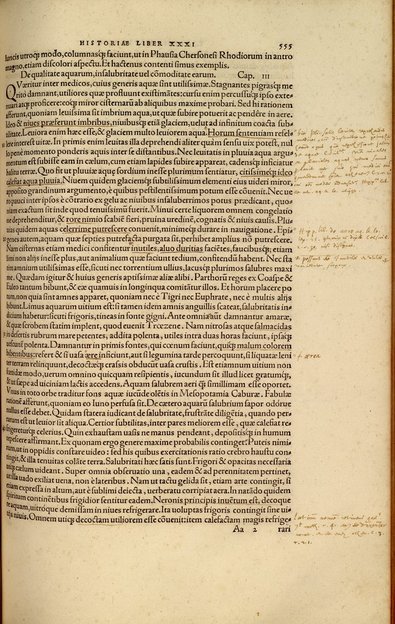 HISTORIAE LIBER XXXI 555
lancis utroq; modo, columnasq; faciunt, ut in Phausia Chersonesi Rhodiorum in antro
magno, etiam discolori aspectu. Et hactenus contenti simus exemplis.
De qualitate aquarum, insalubritate uel cōmoditate earum. Cap. III
QVæritur inter medicos, cuius generis aquæ sint utilissimæ. Stagnantes pigrasq; me
ritò damnant, utiliores quæ profluunt existimantes: cursu enim percussuq; ipso exte
nuari atq; proficere: eoq; miror cisternarū ab aliquibus maxime probari. Sed hi rationem
afferunt, quoniam leuissima sit imbrium aqua, ut quæ subire potuerit ac pendēre in aëre.
Ideo & niues præferunt imbribus, niubusq; etiā glaciem, uelut ad infinitum coacta
utilitate. Leuiora enim hæc esse, & glaciem multo leuiorem aqua. Horum sententiā refel
lere interest uitæ. In primis enim leuitas illa deprehendi aliter quàm sensu uix potest, nul
lo pene momento ponderis aquis inter se distantibus. Nec leuitatis in pluuia aqua argu
mentum est subisse eam in cælum, cum etiam lapides subire appareat, cadensq; inficiatur
halitu terræ. Quo fit ut pluuiæ aquæ sordium inesse plurimum sentiatur, citissimeq; ideo
calefiat aqua pluuia. Niuem quidem glaciemq; subtilissimum elementi eius uideri miror,
apposito grandinum argumento, è quibus pestilentissimum potum esse cōuenit. Nec ue
ro pauci inter ipsos è cōtrario ex gelu ac niubus insaluberrimos potus prædicant, quo
niam exactum sit inde quod tenuissimū fuerit. Minui certe liquorem omnem congelatio
ne deprehenditur, & rore nimio scabiē fieri, pruina uredinē, cognatis & niuis causis. Plu
uias quidem aquas celerrime putrescere conuenit, minimeq; durare in nauigatione. Epi
genes autem, aquam quæ septies putrefacta purgata sit, perhibet amplius nō putrescere.
Nam cisternas etiam medici confitentur inutiles, aluo duritias facientes, faucibusq;: etiam
limi non alijs inesse plus, aut animalium quæ faciunt tedium, confitendū habent. Nec sta
tim amnium utilissimas esse, sicuti nec torrentium ullius, lacusq; plurimos salubres maxi
me. Quædam igitur & huius generis aptissimæ aliæ alibi. Parthorū reges ex Coaspe &
Eulæo tantum bibunt, & eæ quamuis in longinqua comitātur illos. Et horum placere po
tum, non quia sint amnes apparet, quoniam nec è Tigri nec Euphrate, nec è multis alijs
bibunt. Limus aquarum uitium est: si tamen idem amnis anguillis scateat, salubritatis in
dicium habetur: sicuti frigoris, tineas in fonte gigni. Ante omnia aūt damnantur amaræ,
& quæ sorbendæ statim implent, quod euenit Trœzene. Nam nitrosas atque salmacidas
in desertis rubrum mare petentes, addita polenta, utiles intra duas horas faciunt, ipsaq;
uescuntur polenta. Damnantur in primis fontes, qui cœnum faciunt, quiq; malum colorem
bibentibus: refert & si uasa ærea inficiunt, aut si legumina tarde percoquunt, si liquatæ leni
ter terram relinquunt, decoctæq; crassis obducūt uasa crustis. Est etiamnum uitium non
fœtidis modo, uerum omnino quicquam resipientis, iucundum sit illud licet gratumq;,
& ut sæpe ad uiciniam lactis accedens. Aquam salubrem aëri q̄ simillimam esse oportet.
Vnus in toto orbe traditur fons aquæ iucūde olētis in Mesopotamia Caburæ. Fabulæ
rationē afferunt, quoniam eo Iuno perfusa sit. De cætero aquarū salubrium sapor odorue
nullus esse debet. Quidam statera iudicant de salubritate, frustrāte diligētia, quando per
rarum est ut leuior sit aliqua. Certior subtilitas, inter pares meliorem esse, quæ calefiat re
frigereturq; celerius. Quin exhaustam uasis ne manus pendeant, depositisq; in humum
tepescere affirmant. Ex quonam ergo genere maxime probabilis continget? Puteis nimi
rum, ut in oppidis constare uideo: sed his quibus exercitationis ratio crebro haustu con
tingit, & illa tenuitas colāte terra. Salubritati hæc satis sunt. Frigori & opacitas necessaria
utq; cælum uideant. Super omnia obseruatio una, eadem & ad perennitatem pertinet,
ut illa uado exiliat uena, non è lateribus. Nam ut tactu gelida sit, etiam arte contingit, si
etiam expressa in altum, aut è sublimi deiecta, uerberatu corripiat aëra. In natādo quidem
spiritum continētibus frigidior sentitur eadem. Neronis principis inuentum est, decoque
re aquam, uitroque demissam in niues refrigerare. Ita uoluptas frigoris contingit sine ui
tijs niuis. Omnem utiq; decoctam utiliorem esse cōuenit: item calefactam magis refrige-
Aa 2 rari